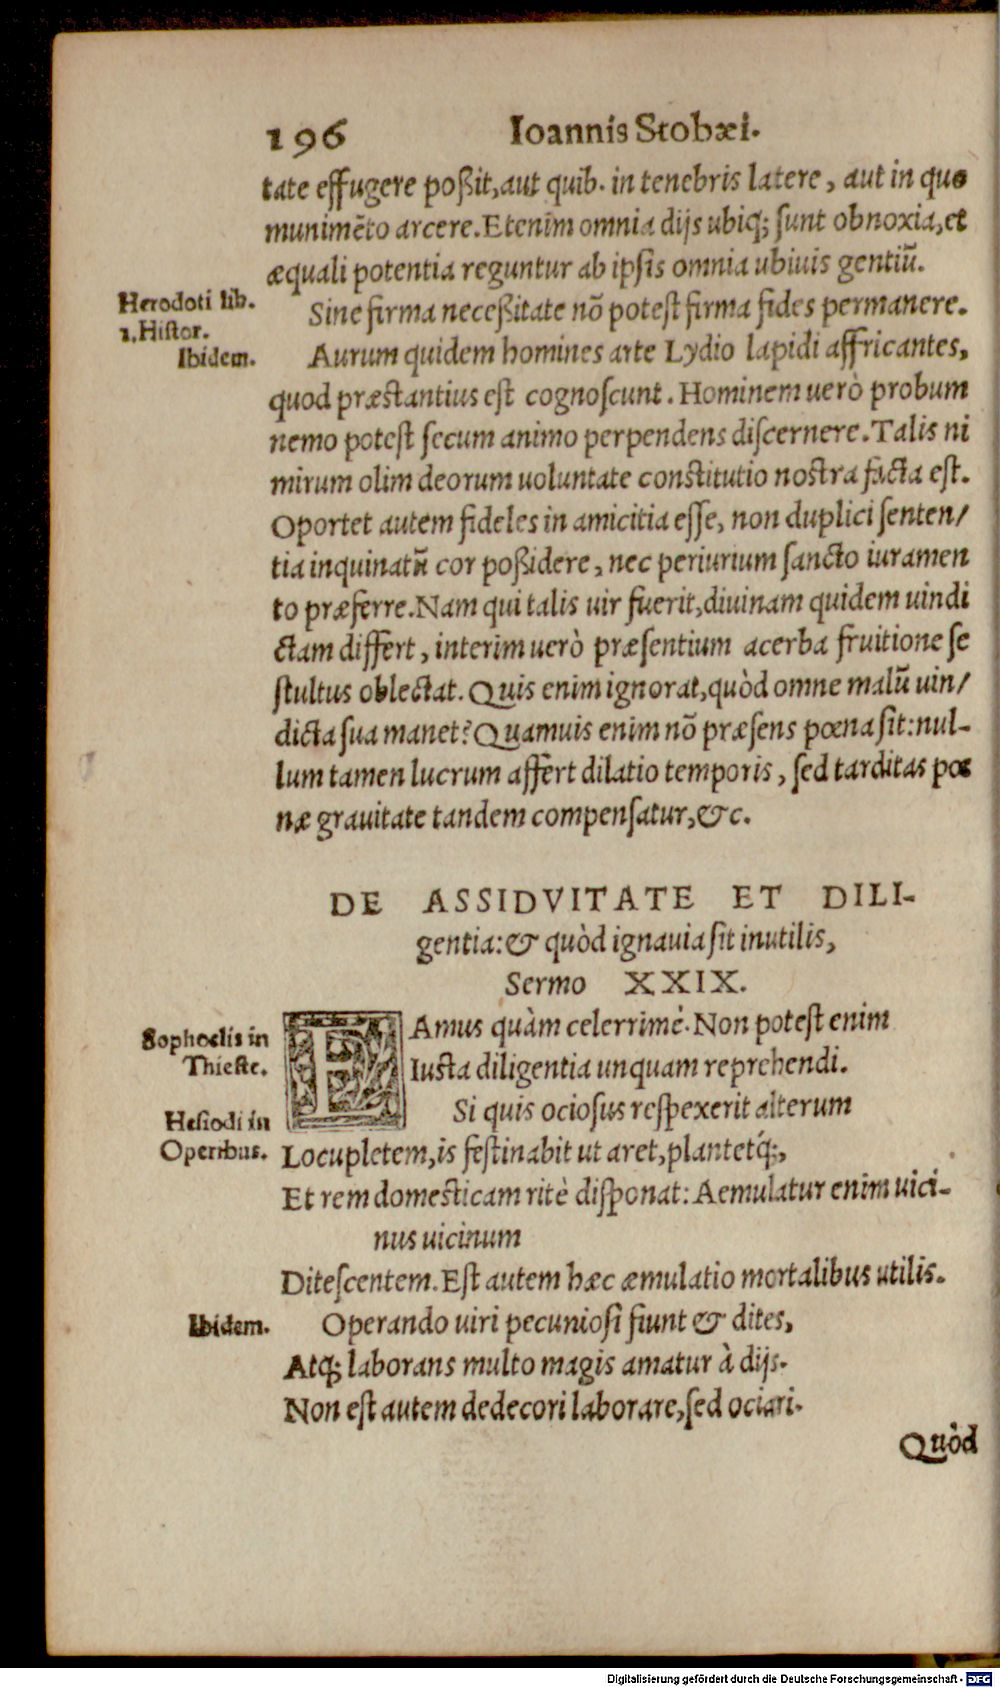 196 Ioannis Stobæi.
tate effugere poßit, aut quib. in tenebris latere, aut in quo
munimēto arcere. Etenim omnia dijs ubiq; sunt obnoxia, et
æquali potentia reguntur ab ipsis omnia ubiuis gentiū.
Herodoti lib.
1. Histor.
Sine firma neceßitate nō potest firma fides permanere.
Ibidem.
Aurum quidem homines arte Lydio lapidi affricantes,
quod præstantius est cognoscunt. Hominem uerò probum
nemo potest secum animo perpendens discernere. Talis ni
mirum olim deorum uoluntate constitutio nostra facta est.
Oportet autem fideles in amicitia esse, non duplici senten/
tia inquinatū cor poßidere, nec periurium sancto iuramen
to præferre. Nam qui talis uir fuerit, diuinam quidem uindi
ctam differt, interim uerò præsentium acerba fruitione se
stultus oblectat. Quis enim ignorat, quòd omne malū uin/
dicta sua manet? Quamuis enim nō præsens pœna sit: nul-
lum tamen lucrum affert dilatio temporis, sed tarditas pœ
næ grauitate tandem compensatur, &c.
DE ASSIDVITATE ET DILI-
gentia: & quòd ignauia sit inutilis,
Sermo XXIX.
Sophoclis in
Thieste.
EAmus quàm celerrimè. Non potest enim
Iusta diligentia unquam reprehendi.
Hesiodi in
Operibus.
Si quis ociosus respexerit alterum
Locupletem, is festinabit ut aret, plantetq́;,
Et rem domesticam ritè disponat: Aemulatur enim uici-
nus uicinum
Ditescentem. Est autem hæc æmulatio mortalibus utilis.
Ibidem.
Operando uiri pecuniosi fiunt & dites,
Atq; laborans multo magis amatur à dijs.
Non est autem dedecori laborare, sed ociari.
Quòd
Digitalisierung gefördert durch die Deutsche Forschungsgemeinschaft - DFG